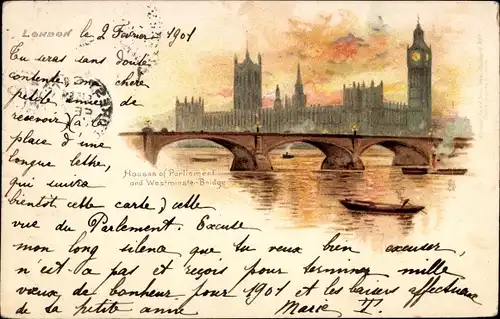 LONDON le 2 Février 1901
Tu seras sans doute
contente, ma chère
petite amie de
recevoir) à la
place d'une
longue lettre,
qui suivra
bientôt cette carte) cette
vue du Parlement. Excuse
mon long silence que tu veux bien excuser,
n'est-à pas et reçois pour terminer mille
vœux de bonheur pour 1901 et les baisers affectueux
de ta petite amie Marie V.
Houses of Parliament
and Westminster-Bridge